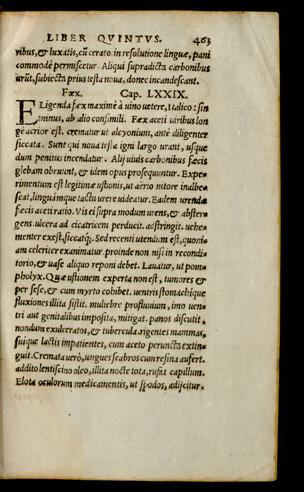 LIBER QVINTVS. 463
ribus, & luxatis, cũ cerato. in resolutione linguæ, pani
commodè permiscetur. Aliqui supradicta carbonibus
urũt, subiecta prius testa noua, donec incandescant.
Fæx. Cap. LXXIX.
ELigenda fæx maximè à uino uetere, Italico: sin
minus, ab alio consimili. Fæx aceti uiribus lon
gè acrior est. crematur ut alcyonium, antè diligenter
siccata. Sunt qui noua testa igni largo urant, usque
dum penitus incendatur. Alij uiuis carbonibus fæcis
glebam obruunt, & idem opus prosequuntur. Expe-
rimentum est legitimæ ustionis, ut aërio nitore inalbe
scat, linguámque tactu urere uideatur. Eadem urendæ
fæcis aceti ratio. Vis ei supra modum urens, & abster-
gens. ulcera ad cicatricem perducit. adstringit. uehe-
menter exest, siccatq́;. Sed recenti utendum est, quoni-
am celeriter exanimatur. proinde non nisi in recondi-
torio, & uase aliquo reponi debet. Lauatur, ut pom-
pholyx. Quæ ustionem experta non est, tumores &
per sese, & cum myrto cohibet. uentris stomachique
fluxiones illita sistit. muliebre profluuium, imo uen-
tri aut genitalibus imposita, mitigat. panos discutit,
nondum exulceratos, & tubercula. rigentes mammas,
suique lactis impatientes, cum aceto peruncta extin-
guit. Cremata uerò, ungues scabros cum resina aufert.
addito lentiscino oleo, illita nocte tota, rufat capillum.
Elota oculorum medicamentis, ut spodos, adijcitur.